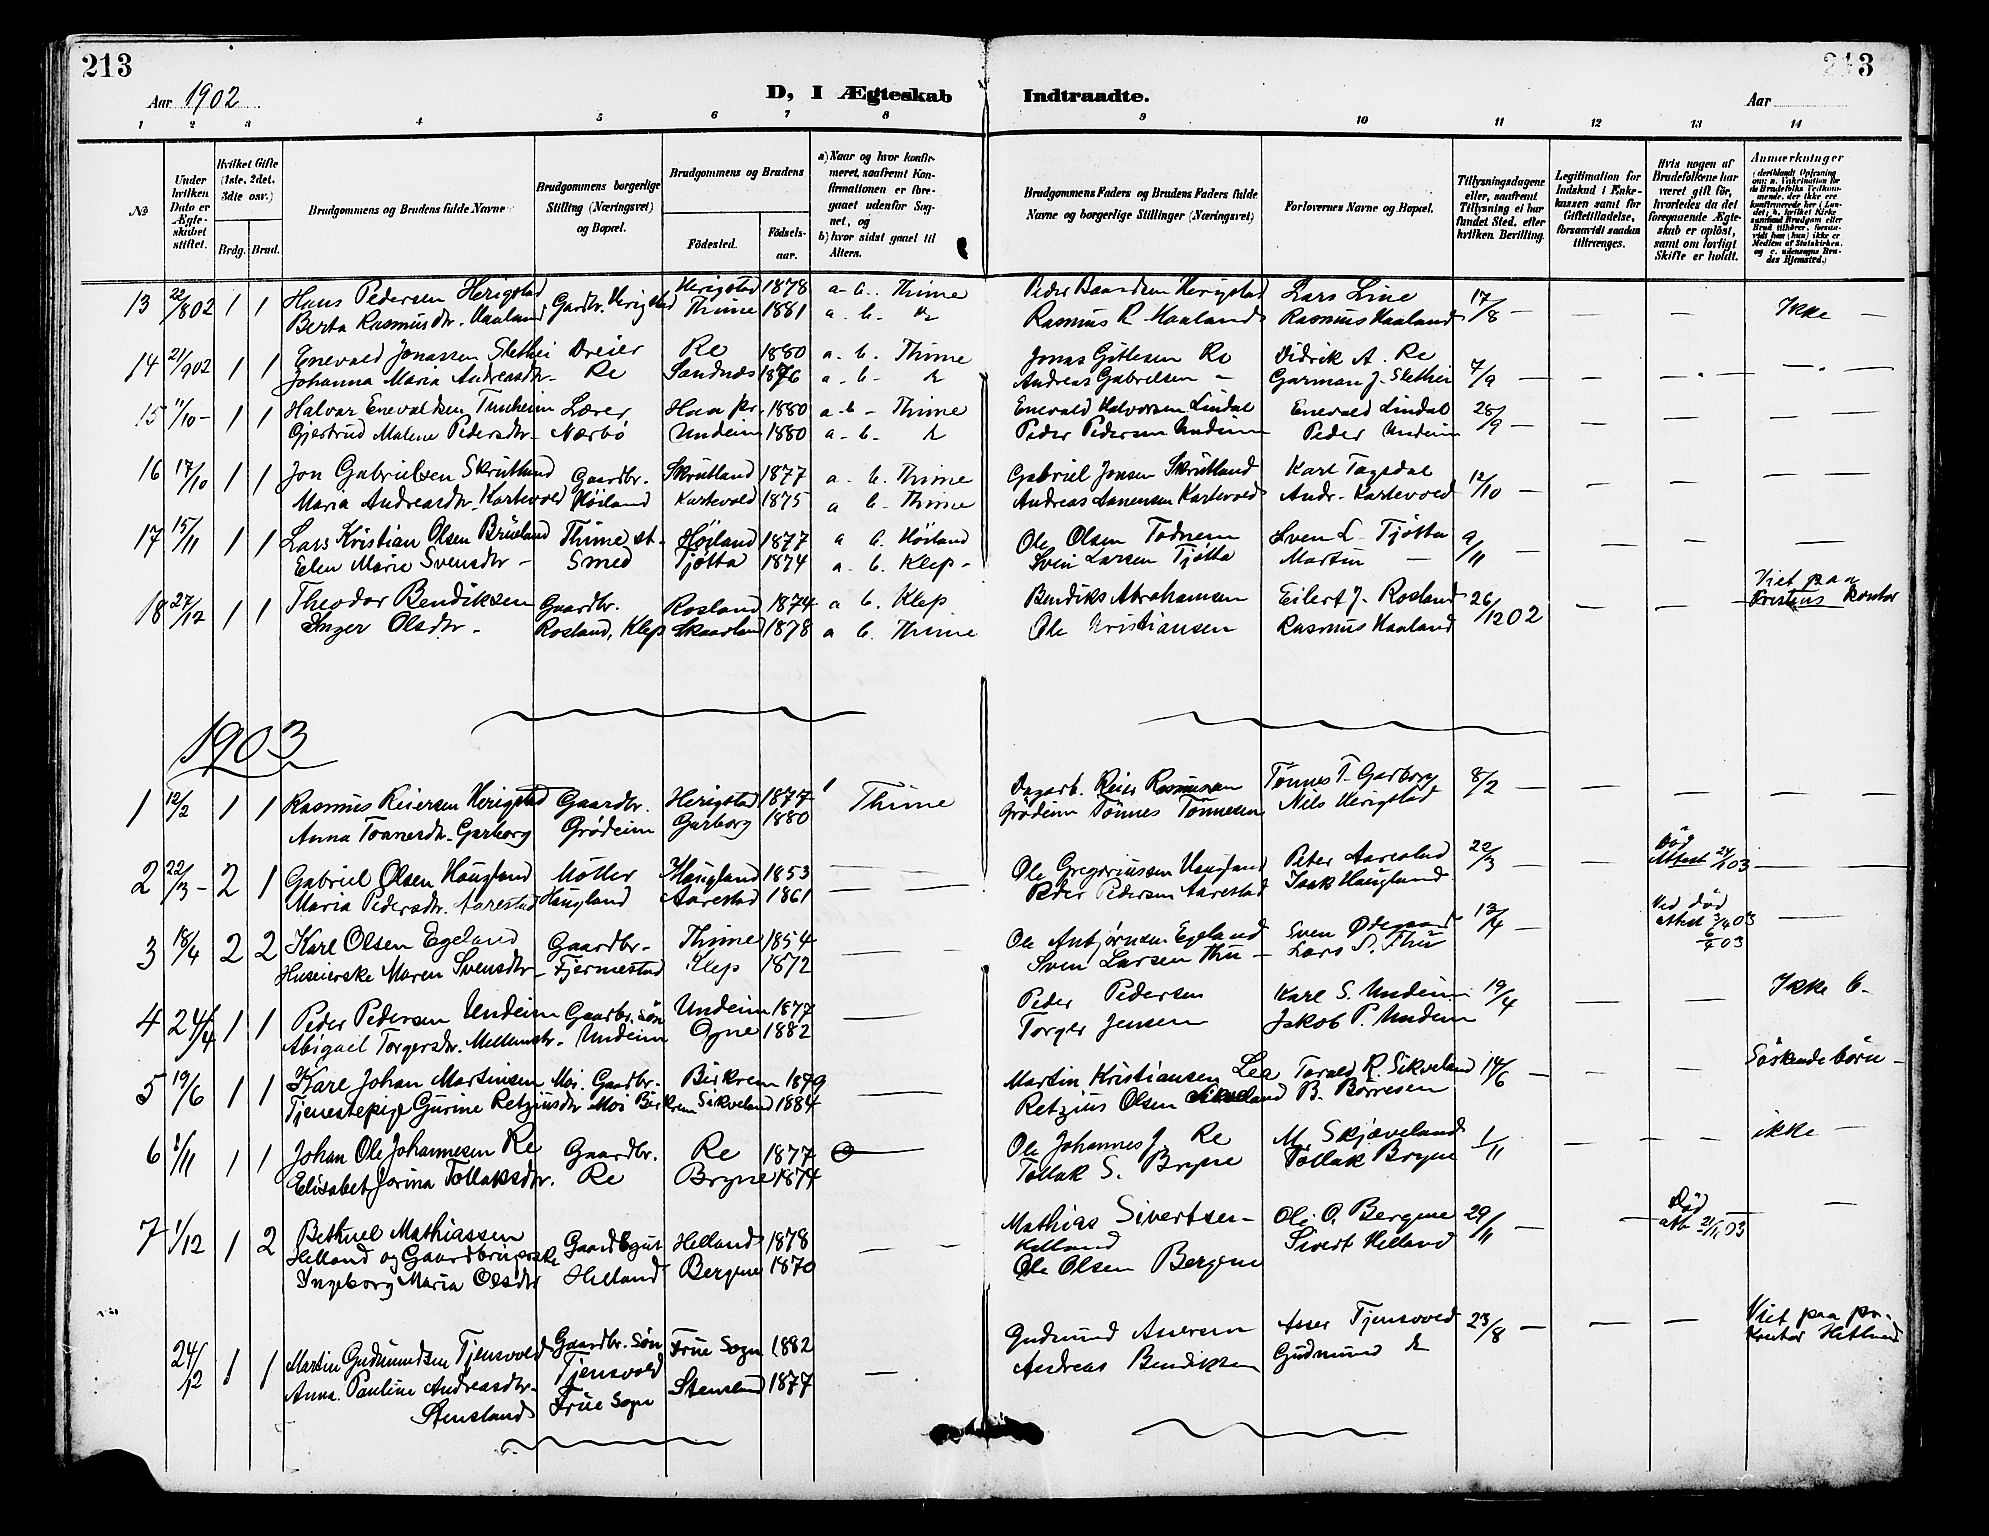 213
213
Aar 1902
D, I Ægteskab Indtraadte.
Aar
1 2 3 4 5 6 7 8 9 10 11 12 13 14
№
Under hvilken Dato er Ægteskabet stiftet.
Hvilket Gifte (1ste, 2det, 3die osv.)
Brdg. Brud.
Brudgommens og Brudens fulde Navne
Brudgommens borgerlige Stilling (Næringsvei) og Bopæl.
Brudgommens og Brudens
Fødested.
Fødselsaar.
a) Naar og hvor konfirmeret, saafremt Konfirmationen er foregaaet udenfor Sognet, og
b) hvor sidst gaaet til Alters.
Brudgommens Faders og Brudens Faders fulde Navne og borgerlige Stillinger (Næringsvei)
Forlovernes Navne og Bopæl.
Tillysningsdagene eller, saafremt Tillysning ei har fundet Sted, efter hvilken Bevilling.
Legitimation for Indskud i Enkekassen samt for Giftetilladelse, forsaavidt saadan tiltrænges.
Hvis nogen af Brudefolkene har været gift før, hvorledes da det foregaaende Ægteskab er opløst, samt om lovligt Skifte er holdt.
Anmærkninger
13 22/8 02 1 1 Hans Pedersen Herigstad Gardbr. Herigstad Herigstad 1878 a - b. Thime Peder Baardsen Herigstad Lars Line 17/8 — — — Ikke —
Berta Rasmusdtr. Haaland Thime 1881 a. b. Do Rasmus R Haaland Rasmus Haaland
14 21/9 02 1 1 Enevald Jonassen Slethei Dreier Re 1880 a. b. Thime Jonas Gitlesen Re Didrik A. Re 7/9 — — — —
Johanna Maria Andreasdtr. Re Sandnæs 1876 a - b - Do Andreas Gabrielsen — Garman J. Slethei
15 11/10 - 1 1 Halvar Enevaldsen Tunheim Lærer Haa Pr. 1880 a - b - Thime Enevald Halvorsen Lindal Enevald Lindal 28/9 — — — —
Gjertrud Malene Pedersdtr. Nærbø Undeim 1880 a - b. Do Peder Pedersen Undeim Peder Undeim
16 17/10 1 1 Jon Gabrielsen Skrutland Gaardbr. Skrutland 1877 a. b. Thime Gabriel Jonsen Skrutland Karl Tagsdal 12/10 — — — —
Maria Andreasdtr. Kartevold Høiland Kartevold 1875 a b. Thime Andreas Kartevold Andr. Kartevold
17 15/11 1 1 Lars Kristian Olsen Brueland Thime st. Høiland 1877 a b. Høiland Ole Olsen Todnem Sven L. Tjøtta 9/11 — — — —
Elen Marie Svensdtr - Smed Tjøtta 1874 a. b. Klep - Sven Larsen Tjøtta Martin —
18 27/12 1 1 Theodor Bendiksen Gaardbr. Rosland 1874 a b. Klep Bendiks Abrahamsen Eilert J. Rosland 26/12 02 — — Viet paa
Inger Olsdtr - Rosland, Klep Skaarland 1878 a b. Thime Ole Kristiansen Rasmus Haaland Prestens Kontor
1903
1 12/2 1 1 Rasmus Reiersen Herigstad Gaardbr. Herigstad 1877 Thime Dagarb. Reier Rasmussen Tønnes T. Garborg 8/2 — — — —
Anna Tønnesdtr. Garborg Grødeim Garborg 1880 Grødeim Tønnes Tønnesen Nils Herigstad
2 22/3 - 2 1 Gabriel Olsen Haugland Møller Haugland 1853 — Ole Gregoriussen Haugland Peter Aarestad 22/3 — — Død Attest 03 —
Maria Pedersdtr. Aarestad Haugland Aarestad 1861 — Peder Pedersen Aarestad Isak Haugland
3 18/4 2 2 Karl Olsen Egeland Gaardbr - Thime 1854 — Ole Anbjørnsen Egeland Sven Ødegaard 13/4 — Ved død attest 3/4 03 —
Huseierske Maren Svensdtr - Fjermestad Klep 1872 Sven Larsen Thu - Lars S. Thu
4 24/4 1 1 Peder Pedersen Undeim Gaardbr. søn Undeim 1877 — Peder Pedersen Karl S. Undeim 19/4 — — Ikke b -
Abigael Torgersdtr. Undeim Ogne 1882 Torger Jensen Jakob P. Undeim
5 19/6 1 1 Karl Johan Martinsen Moi. Gaardbr - Birkrem 1879 — Martin Kristiansen Lea Torald R. Sikveland 14/6 — — — Søskendebørn -
Tjenestepige Gurine Retziusdtr Moi Birkrem Sikveland 1884 Retzius Olsen Sikveland B. Børresen
6 1/11 1 1 Johan Ole Johannesen Re Gaardbr. Re 1877 — Ole Johannes J. Re M. Skjæveland 1/11 — — — ikke —
Elisabet Jorina Tollaksdtr. Re Bryne 1874 Tollak S. Bryne Tollak Bryne
7 1/12 1 2 Bethuel Mathiassen Gaardbgut Helland 1878 — Mathias Sivertsen - Ole O. Bergene 29/11 — — Død att. 21/11 03 —
Helland og Gaardbrugerske Helland Bergene 1870 Helland Sivert Helland
Ingeborg Maria Olsdtr Ole Olsen Bergene
24/12 1 1 Martin Gudmundsen Tjensvold Gaardbr. Søn Frue Sogn 1882 — Gudmund Assersen Asser Tjensvold 23/8 — — — Viet paa pr.
Anna Pauline Andreasdtr - Tjensvold Stensland 1877 Andreas Bendiksen Gudmund Do Kontor Hetland
Stensland Frue Sogn